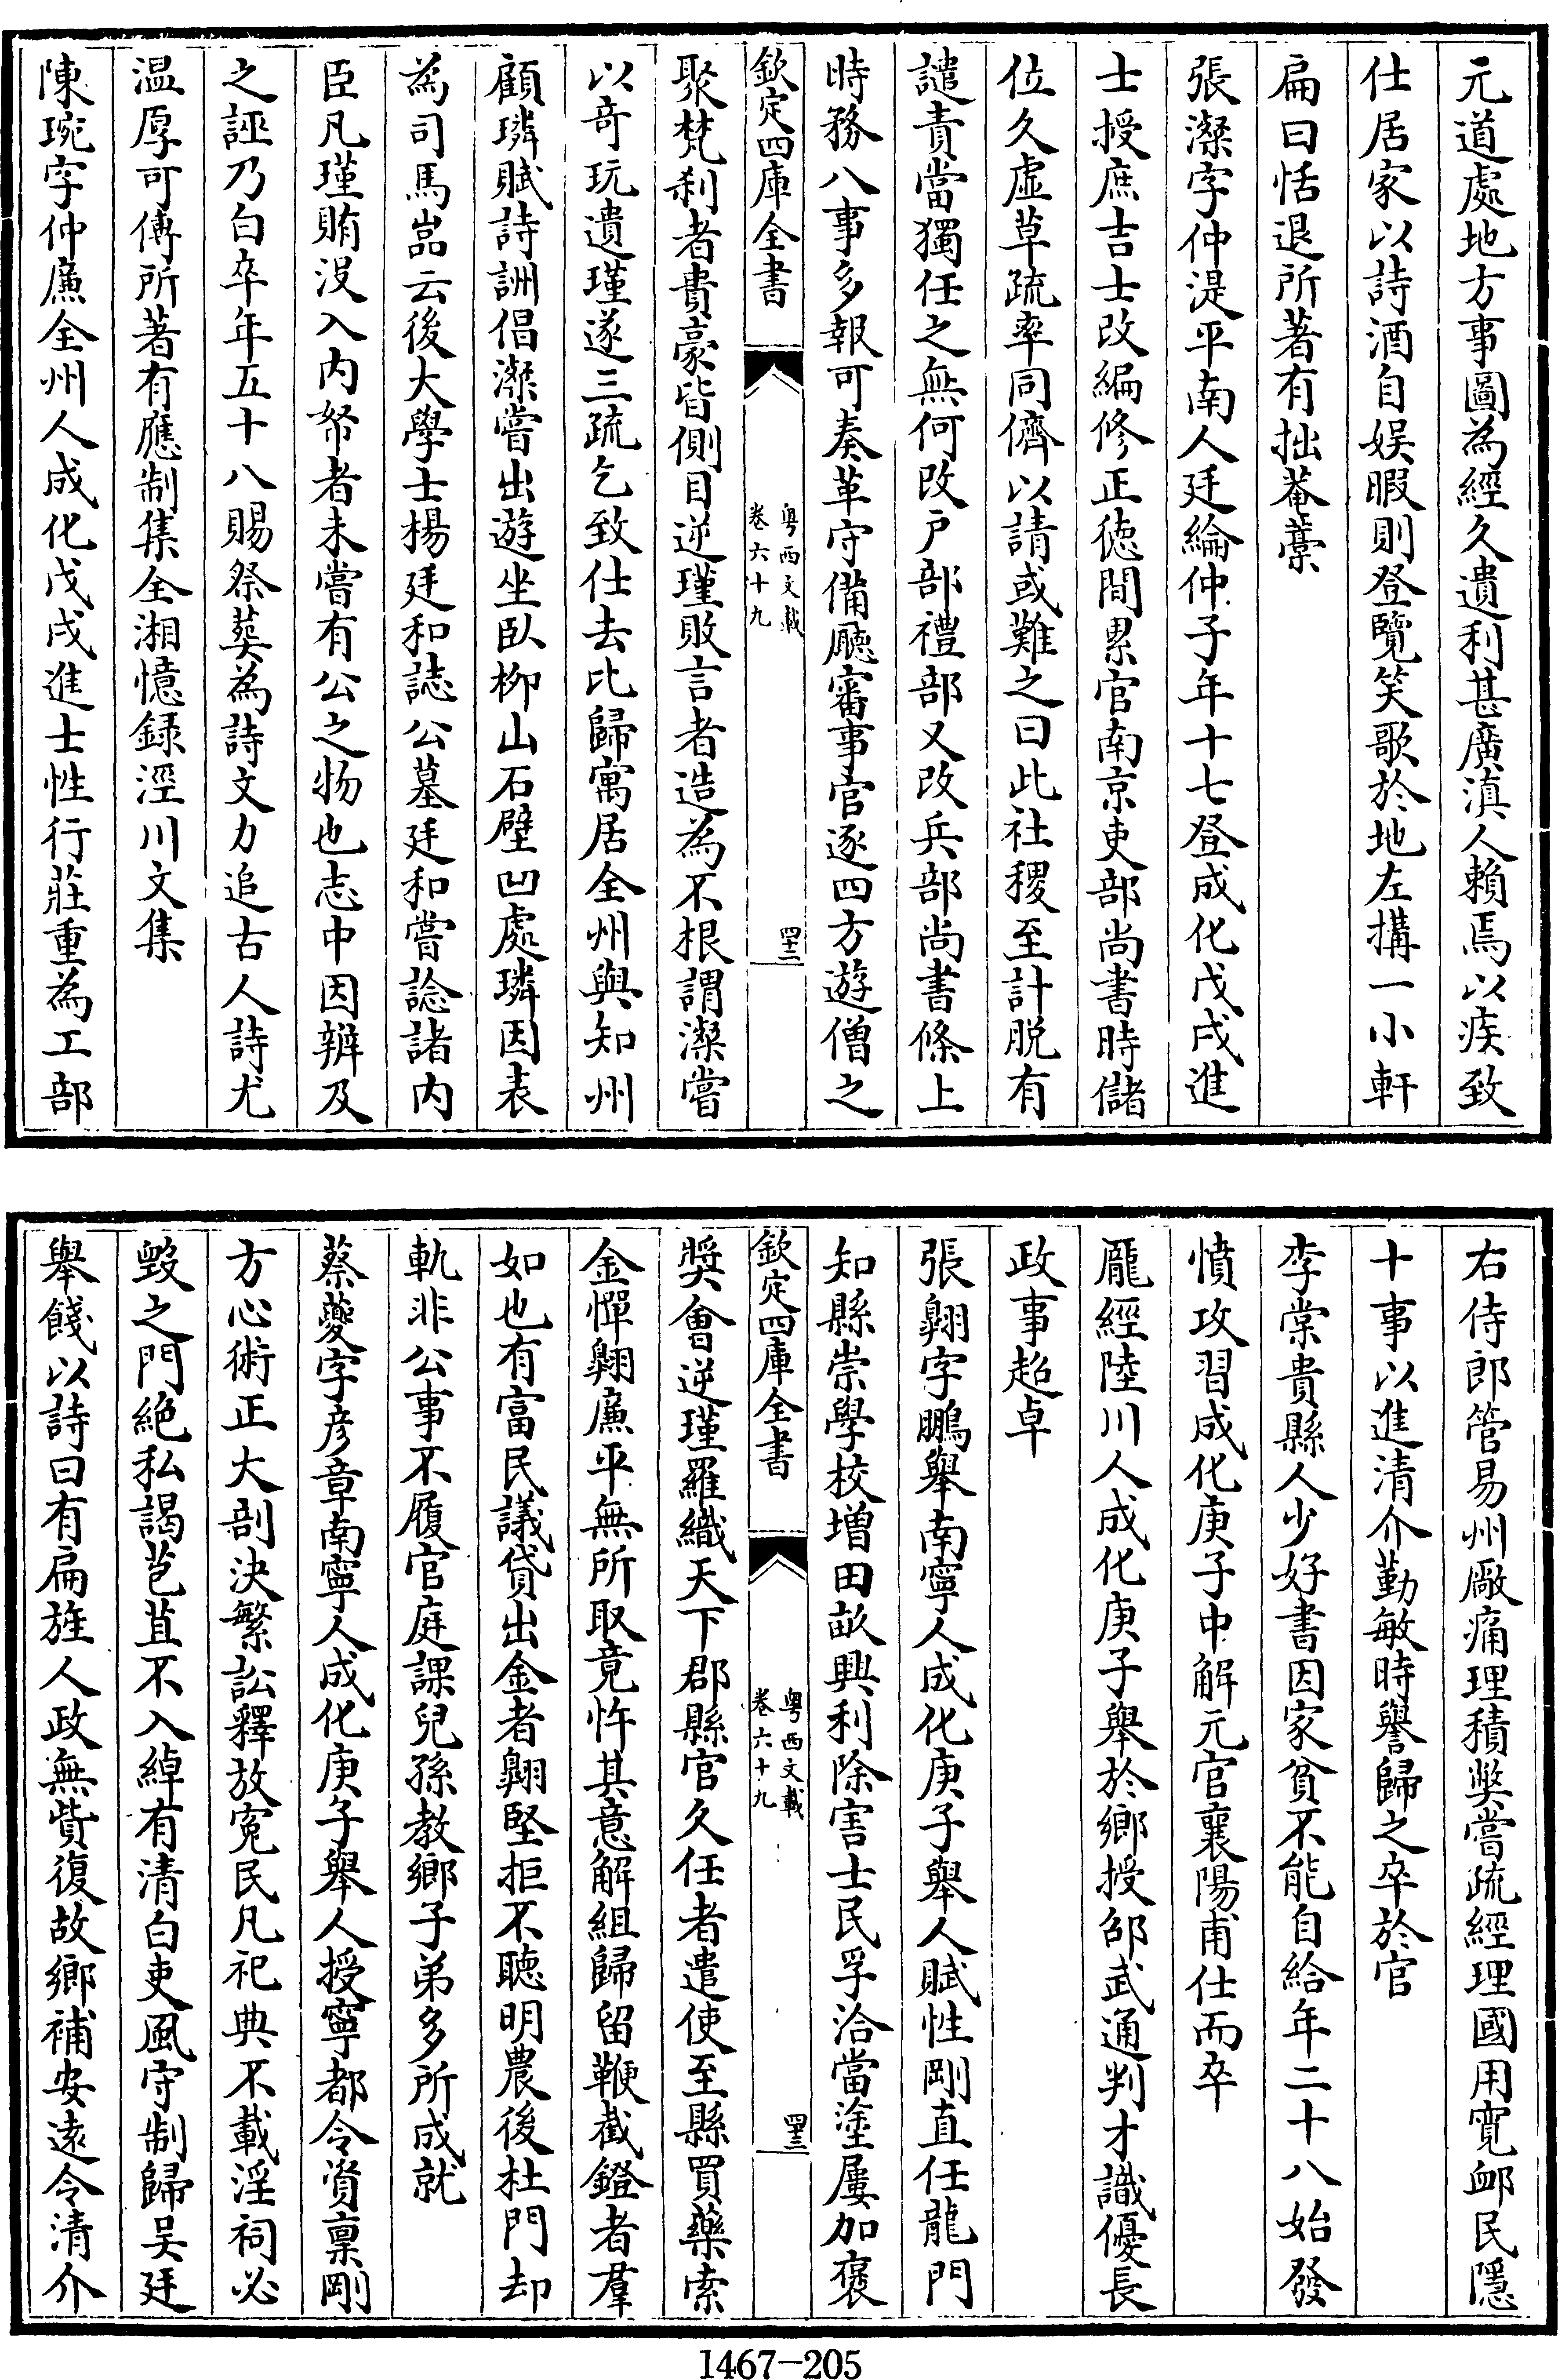 元道處地方事圖為經久遺利甚廣滇人賴焉以疾致
仕居家以詩酒自娱暇則登覽笑歌於地左搆一小軒
扁曰恬退所著有拙菴藳
張澯字仲湜平南人廷綸仲子年十七登成化戊戌進
士授庶吉士改編修正徳間累官南京吏部尚書時儲
位久虛草疏率同儕以請或難之曰此社稷至計脱有
譴責當獨任之無何改户部禮部又改兵部尚書條上
時務八事多報可奏革守備廳審事官逐四方遊僧之
欽定四庫全書
粤西文載
卷六十九
四十三
聚梵刹者貴豪皆側目逆瑾敗言者造為不根謂澯嘗
以奇玩遺瑾遂三疏乞致仕去比歸寓居全州與知州
顧璘賦詩詶倡澯嘗出遊坐臥柳山石壁凹處璘因表
為司馬嵓云後大學士楊廷和誌公墓廷和嘗諗諸内
臣凡瑾賄没入内帑者未嘗有公之物也志中因辨及
之誣乃白卒年五十八賜祭葬為詩文力追古人詩尤
温厚可傳所著有應制集全湘憶録涇川文集
陳琬字仲廉全州人成化戊戌進士性行莊重為工部
右侍郎管易州廠痛理積獘嘗疏經理國用寛䘏民隱
十事以進清介勤敏時譽歸之卒於官
李棠貴縣人少好書因家貧不能自給年二十八始發
憤攻習成化庚子中解元官襄陽甫仕而卒
龎經陸川人成化庚子舉於鄉授邵武通判才識優長
政事超卓
張翺字鵬舉南寧人成化庚子舉人賦性剛直任龍門
知縣崇學校増田畝興利除害士民孚洽當塗屢加褒
欽定四庫全書
粤西文載
卷六十九
四十三
奬會逆瑾羅織天下郡縣官久任者遣使至縣買藥索
金憚翺廉平無所取竟忤其意解組歸留鞭截鐙者羣
如也有富民議貸出金者翺堅拒不聽明農後杜門却
軌非公事不履官庭課兒孫教鄉子弟多所成就
蔡夔字彦章南寧人成化庚子舉人授寧都令資稟剛
方心術正大剖決繁訟釋放寃民凡祀典不載淫祠必
毁之門絶私謁苞苴不入綽有清白吏風守制歸吴廷
舉餞以詩曰有扁旌人政無貲復故鄉補安遠令清介
1467—205